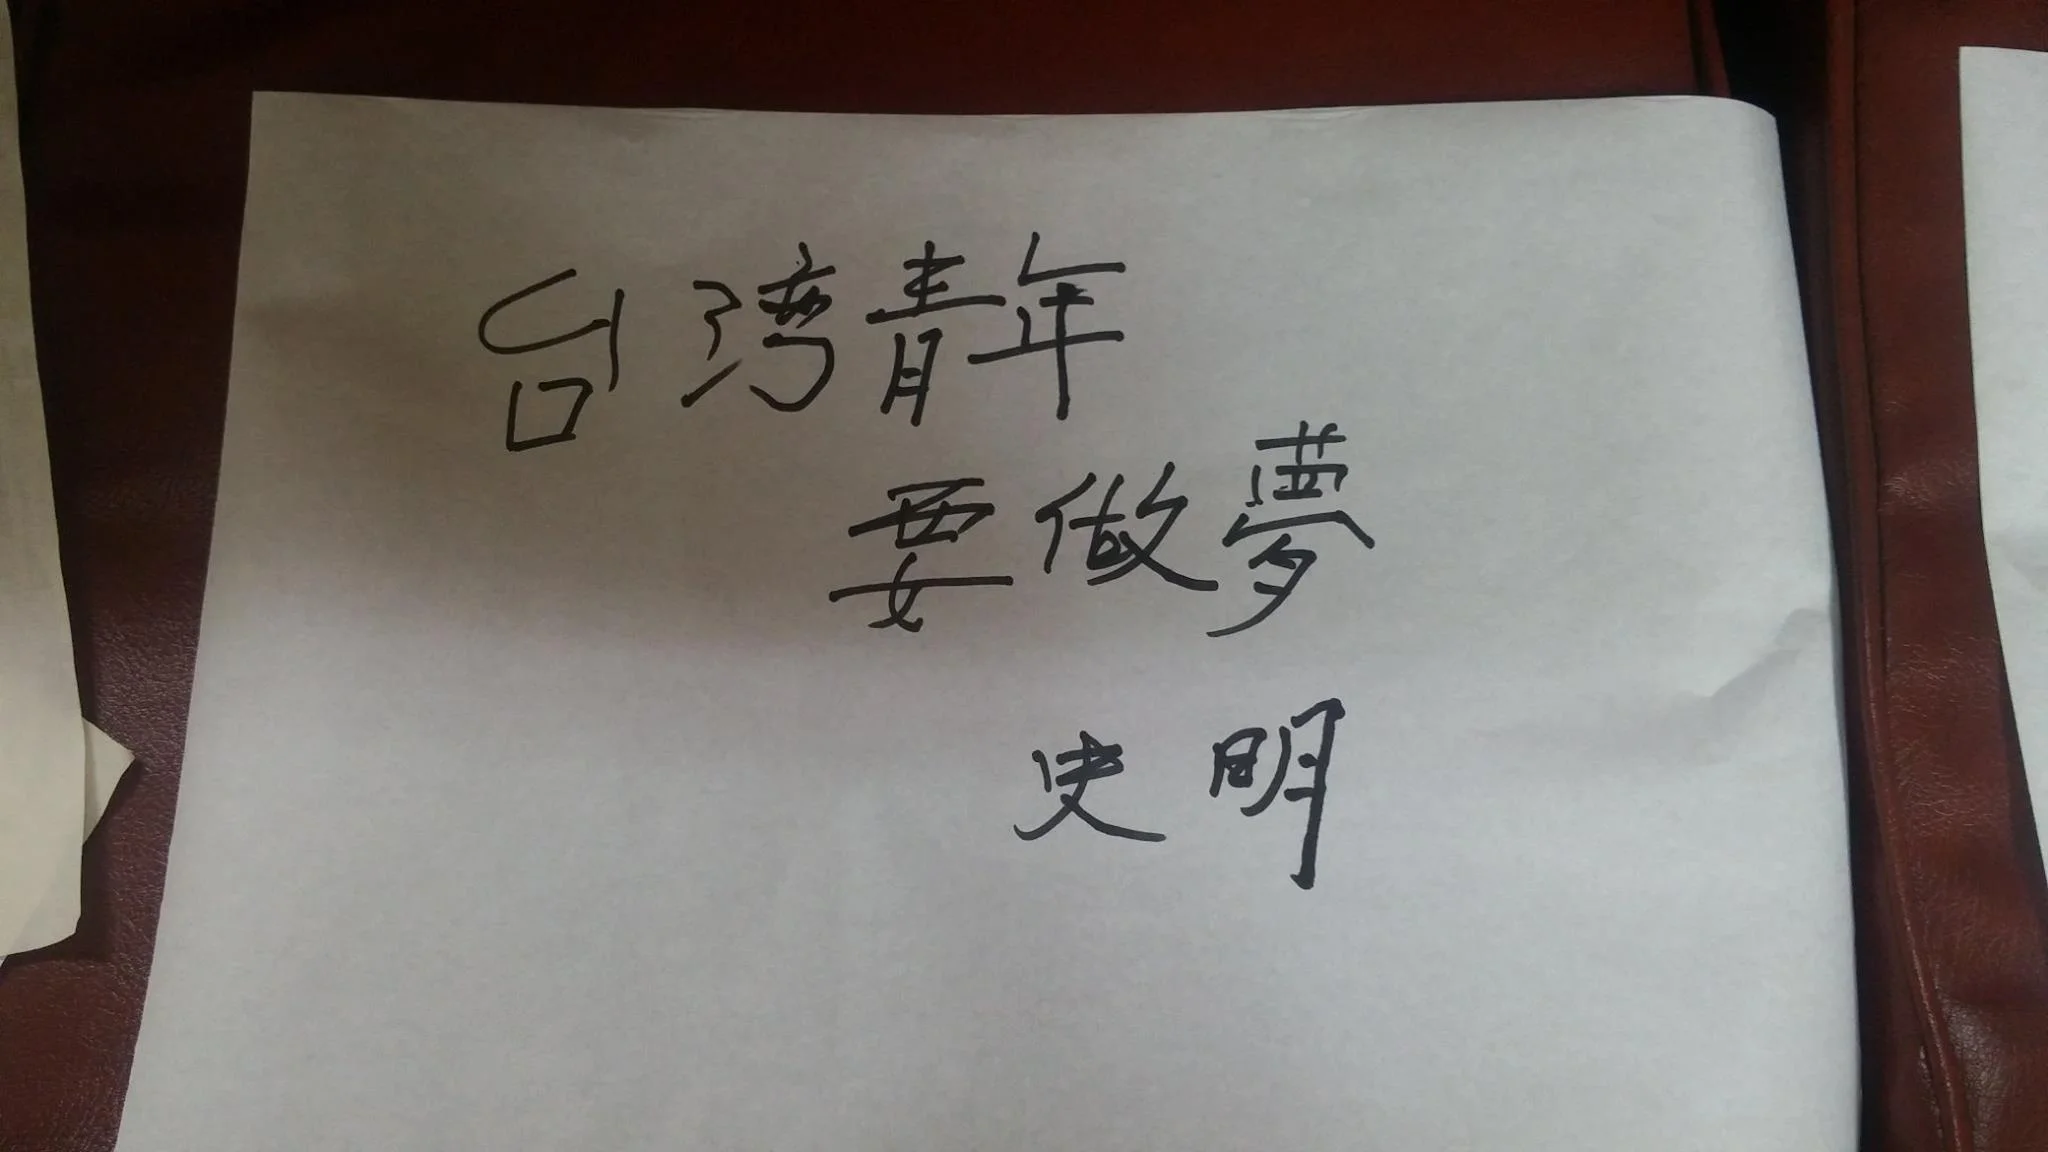 台湾青年
要做夢
史明